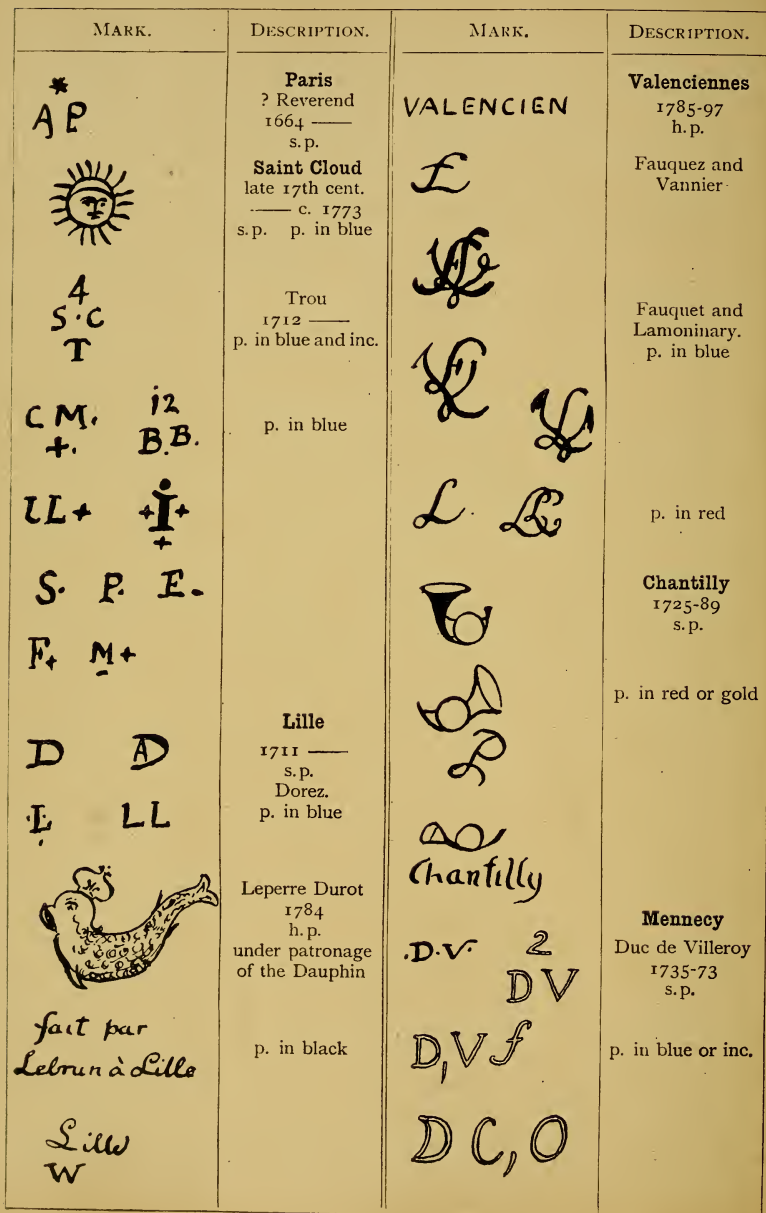 MARK.
DESCRIPTION.
A P
Paris
? Reverend
1664 ——
s.p.
Saint Cloud
late 17th cent.
—— c. 1773
s.p. p. in blue
4
S·C
T
Trou
1712 ——
p. in blue and inc.
C M. i2
+. B.B.
p. in blue
LL+ +I+
+
S. P. E.
F+ M+
D AD
L LL
Lille
1711 ——
s.p.
Dorez.
p. in blue
Leperre Durot
1784
h.p.
under patronage
of the Dauphin
fait par
Lebrun à Lille
p. in black
Lille
W
MARK.
DESCRIPTION.
VALENCIEN
Valenciennes
1785-97
h.p.
Fauquez and
Vannier
Fauquet and
Lamoninary.
p. in blue
L
p. in red
Chantilly
1725-89
s.p.
p. in red or gold
P
Chantilly
.D.V. 2
D V
Mennecy
Duc de Villeroy
1735-73
s.p.
D,V f
p. in blue or inc.
D C,O